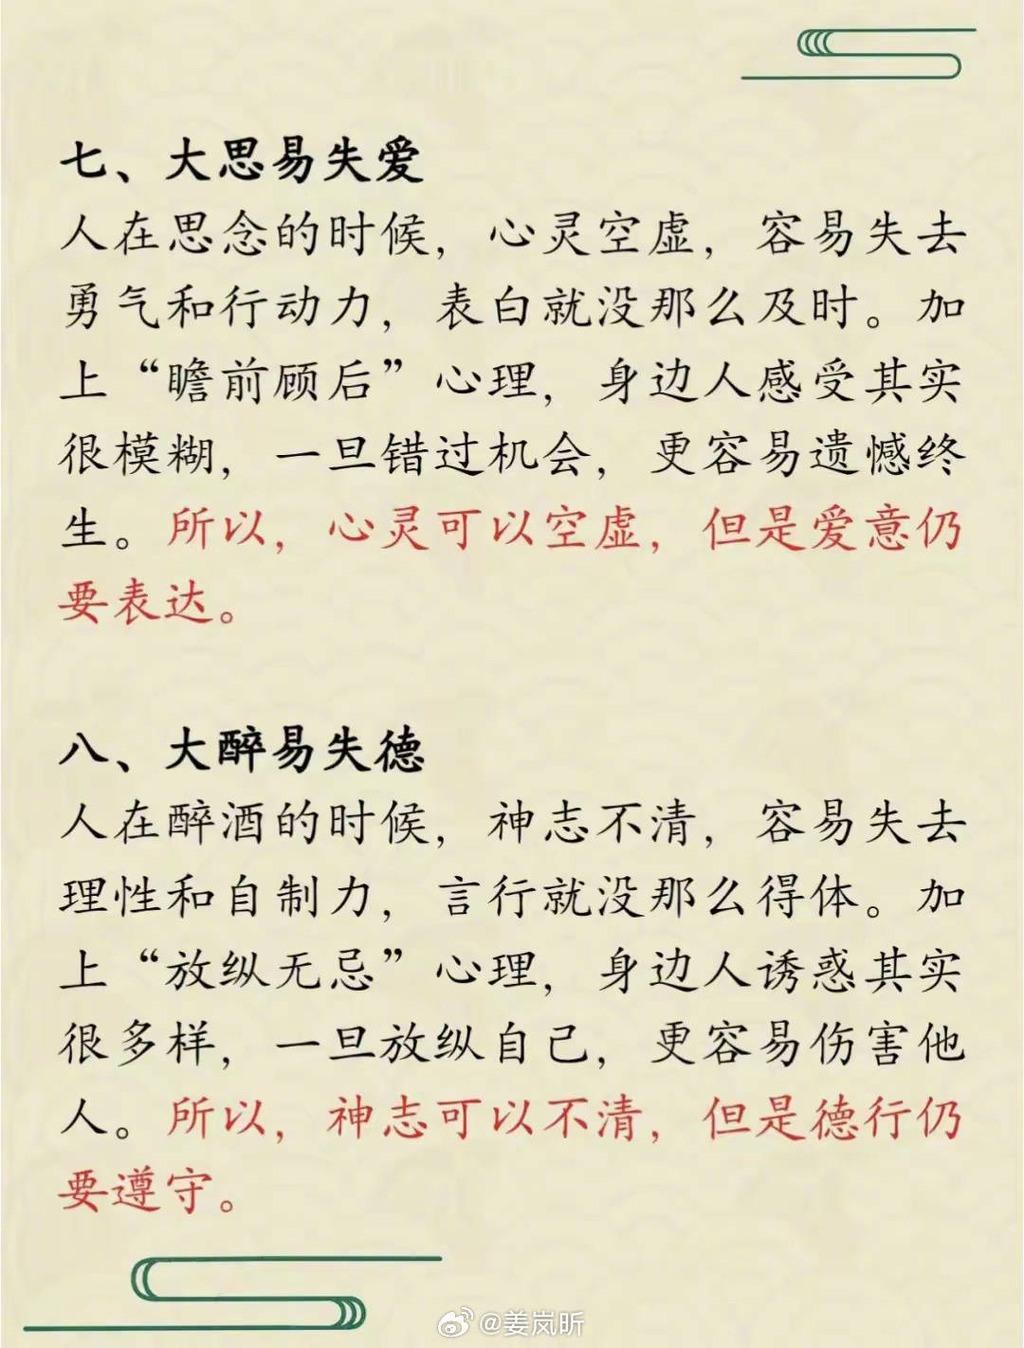 七、大思易失爱
人在思念的时候，心灵空虚，容易失去
勇气和行动力，表白就没那么及时。加
上“瞻前顾后”心理，身边人感受其实
很模糊，一旦错过机会，更容易遗憾终
生。所以，心灵可以空虚，但是爱意仍
要表达。
八、大醉易失德
人在醉酒的时候，神志不清，容易失去
理性和自制力，言行就没那么得体。加
上“放纵无忌”心理，身边人诱惑其实
很多样，一旦放纵自己，更容易伤害他
人。所以，神志可以不清，但是德行仍
要遵守。
@姜岚昕